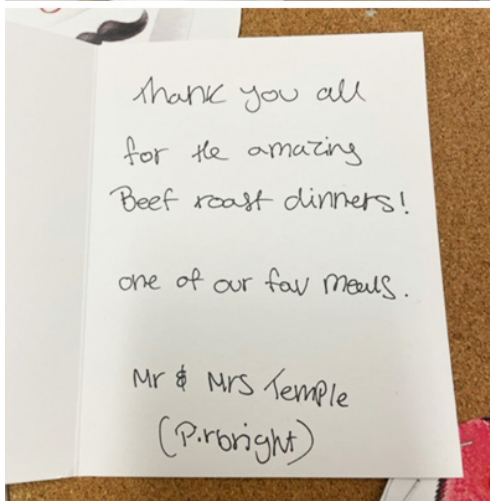 Thank you all
for the amazing
Beef roast dinners!
one of our fav meals.
Mr & Mrs Temple
(Pirbright)